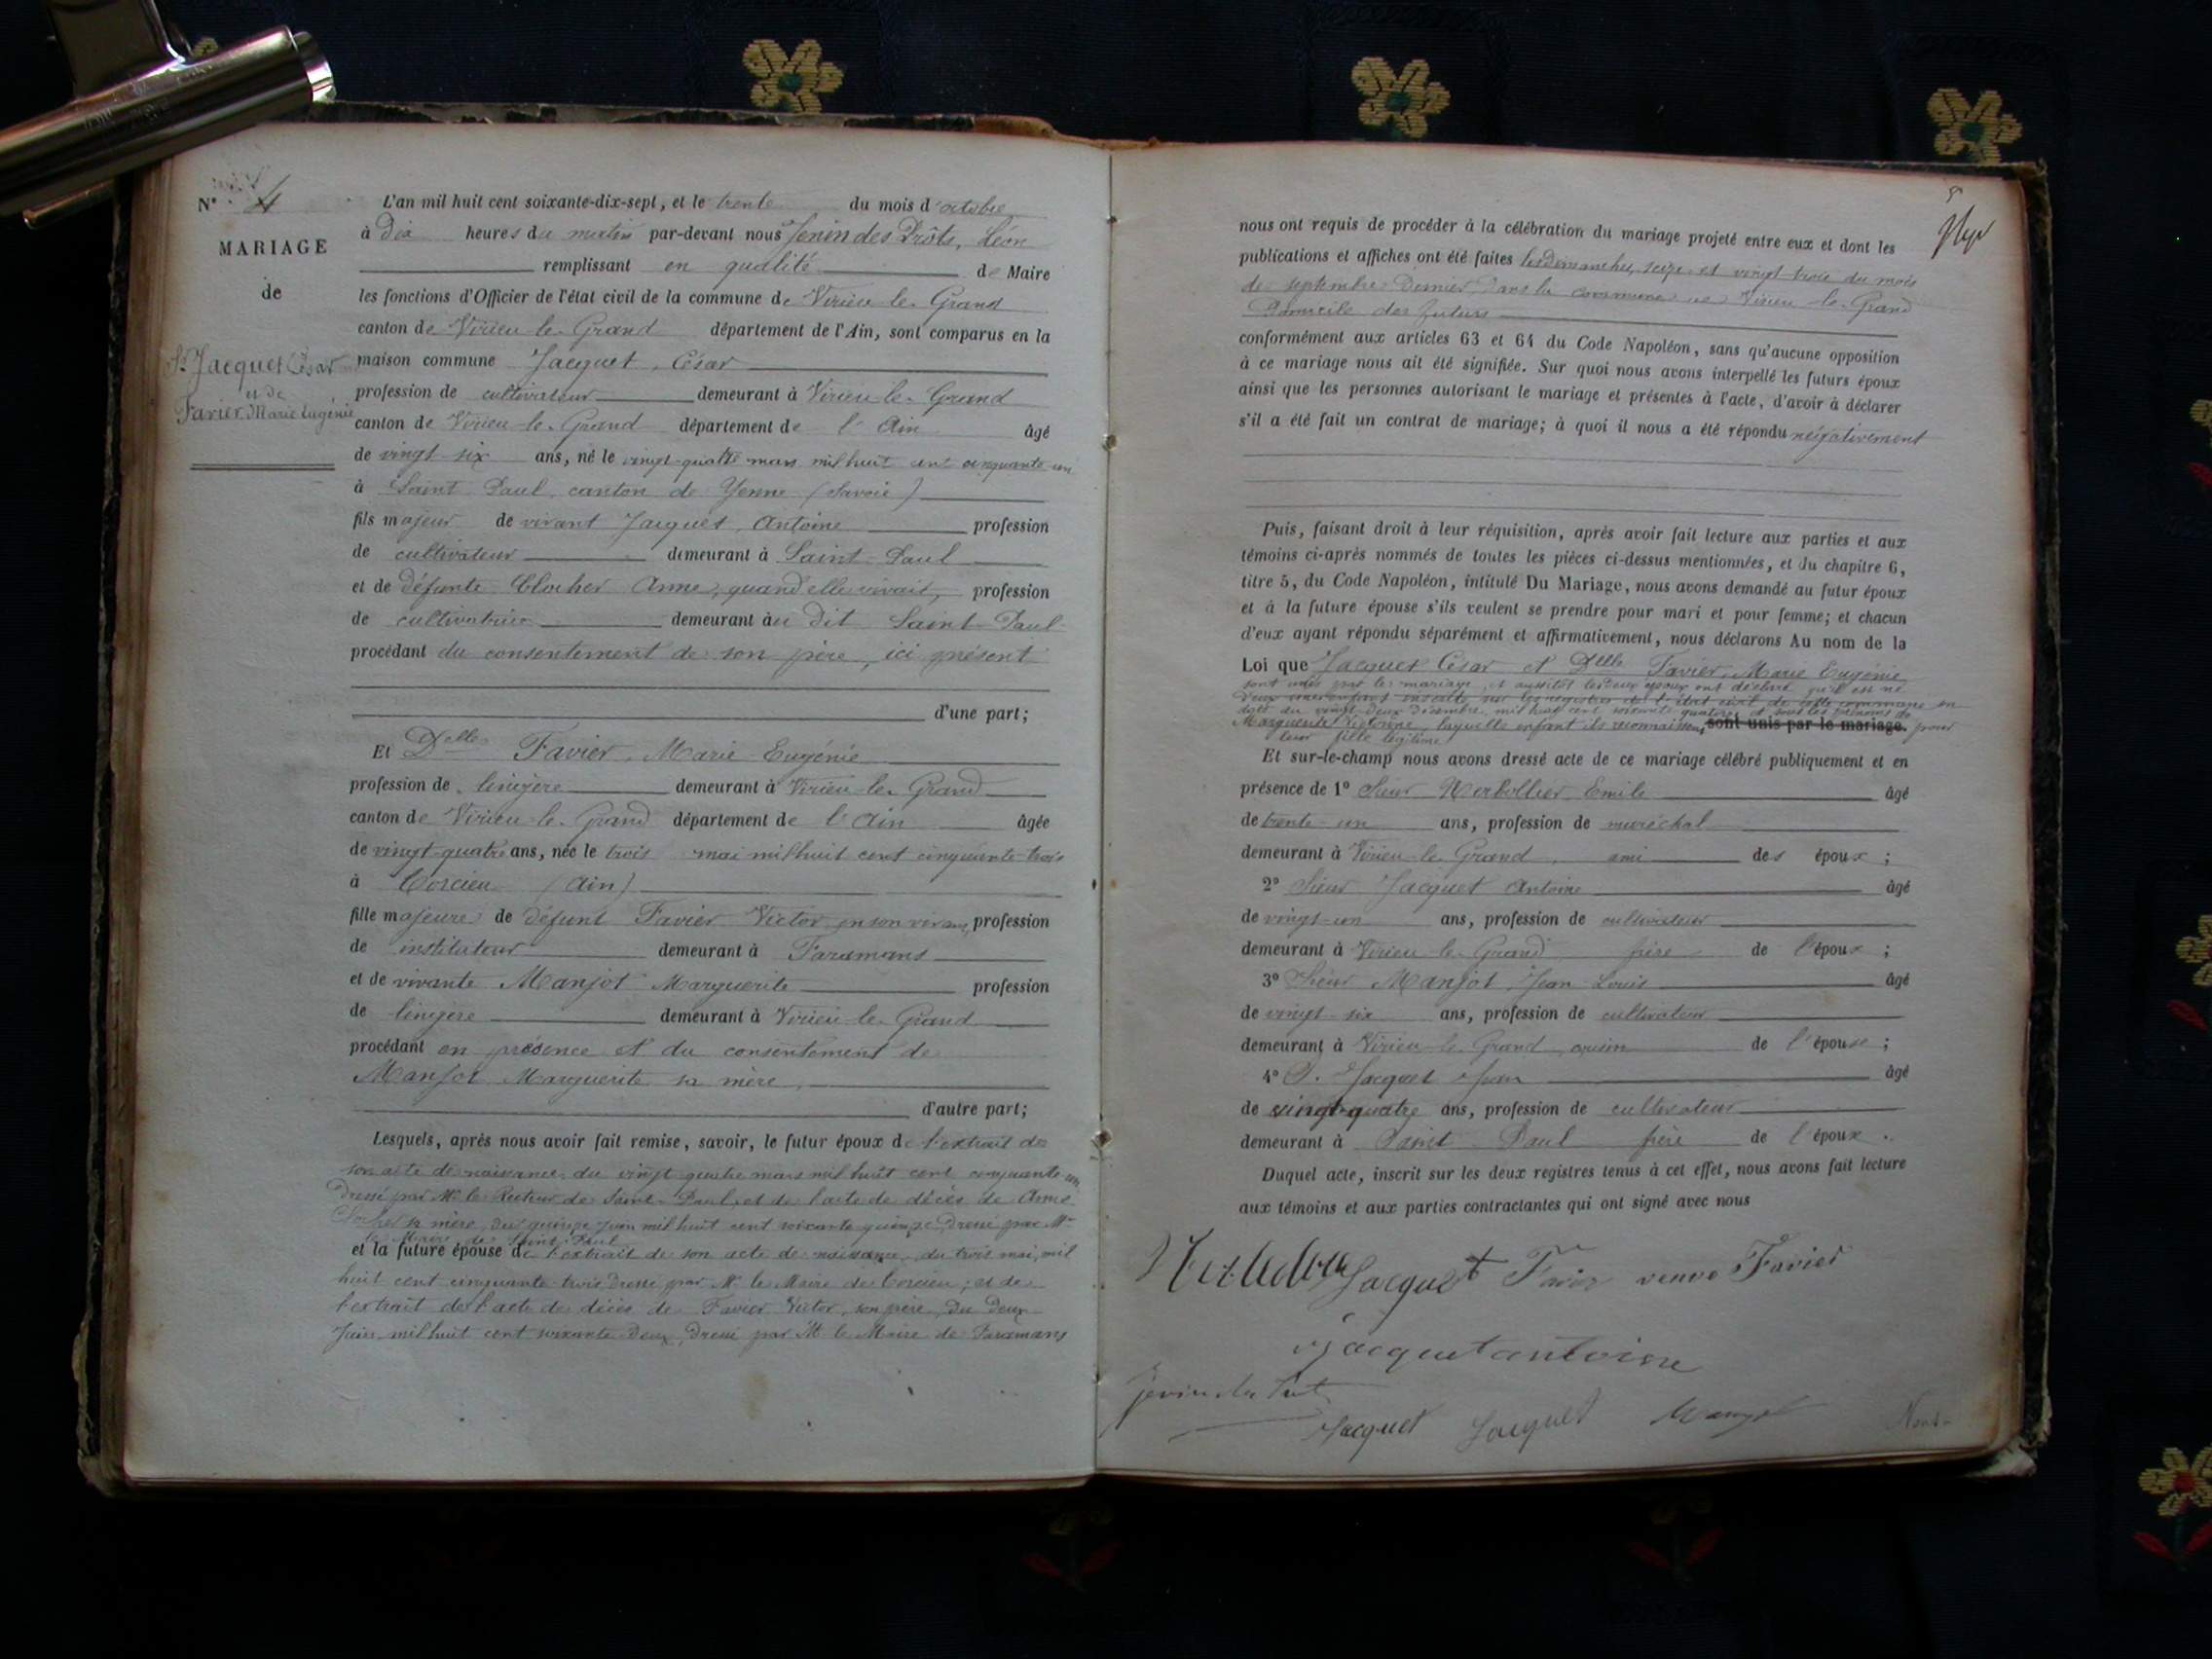 N° 4
MARIAGE
de
Sr Jacquet César
et de
Favier Marie Eugénie
L'an mil huit cent soixante-dix-sept, et le trente du mois d'octobre
à dix heures du matin par-devant nous Jenin des Prôts, Léon
remplissant en qualité de Maire
les fonctions d'Officier de l'état civil de la commune de Virieu-le-Grand
canton de Virieu-le-Grand département de l'Ain, sont comparus en la
maison commune Jacquet, César
profession de cultivateur demeurant à Virieu-le-Grand
canton de Virieu-le-Grand département de l'Ain âgé
de vingt-six ans, né le vingt-quatre mars mil huit cent cinquante-un
à Saint Paul, canton de Yenne (Savoie)
fils majeur de vivant Jacquet, Antoine profession
de cultivateur demeurant à Saint-Paul
et de défunte Clocher Anne, quand elle vivait, profession
de cultivatrice demeurant au dit Saint-Paul
procédant du consentement de son père, ici présent
d'une part;
Et Delle Favier, Marie-Eugénie
profession de lingère demeurant à Virieu-le-Grand
canton de Virieu-le-Grand département de l'Ain âgée
de vingt-quatre ans, née le trois mai mil huit cent cinquante-trois
à Corcieu (Ain)
fille majeure de défunt Favier Victor, en son vivant, profession
de instituteur demeurant à Faramans
et de vivante Manjot Marguerite profession
de lingère demeurant à Virieu-le-Grand
procédant en présence et du consentement de
Manjot Marguerite sa mère,
d'autre part;
Lesquels, après nous avoir fait remise, savoir, le futur époux de l'extrait de
son acte de naissance du vingt quatre mars mil huit cent cinquante-un
dressé par Mr le Recteur de Saint-Paul, et de l'acte de décès de Anne
Clocher sa mère, du quinze juin mil huit cent soixante quinze, dressé par Mr
le Maire de Saint-Paul
et la future épouse de l'extrait de son acte de naissance, du trois mai, mil
huit cent cinquante-trois dressé par Mr le Maire de Corcieu; et de
l'extrait de l'acte de décès de Favier Victor, son père, du deux
Juin mil huit cent soixante-deux, dressé par Mr le Maire de Faramans
5
nous ont requis de procéder à la célébration du mariage projeté entre eux et dont les
publications et affiches ont été faites les dimanches, seize et vingt-trois du mois
de septembre dernier, dans la commune de Virieu-le-Grand
domicile des futurs
conformément aux articles 63 et 64 du Code Napoléon, sans qu'aucune opposition
à ce mariage nous ait été signifiée. Sur quoi nous avons interpellé les futurs époux
ainsi que les personnes autorisant le mariage et présentes à l'acte, d'avoir à déclarer
s'il a été fait un contrat de mariage; à quoi il nous a été répondu négativement
Puis, faisant droit à leur réquisition, après avoir fait lecture aux parties et aux
témoins ci-après nommés de toutes les pièces ci-dessus mentionnées, et du chapitre 6,
titre 5, du Code Napoléon, intitulé Du Mariage, nous avons demandé au futur époux
et à la future épouse s'ils veulent se prendre pour mari et pour femme; et chacun
d'eux ayant répondu séparément et affirmativement, nous déclarons Au nom de la
Loi que Jacquet César et Delle Favier, Marie Eugénie
sont unis par le mariage, et aussitôt les deux époux ont déclaré qu'il est né
d'eux une enfant inscrite sur les registres de l'état civil de cette commune en
date du vingt-deux décembre, mil huit cent soixante-quatorze et sous les prénoms de
Marguerite Victorine, laquelle enfant ils reconnaissent sont unis par le mariage. pour
leur fille légitime
Et sur-le-champ nous avons dressé acte de ce mariage célébré publiquement et en
présence de 1° Sieur Emile âgé
de trente-un ans, profession de maréchal
demeurant à Virieu-le-Grand, ami des époux;
2° Sieur Jacquet Antoine âgé
de vingt-un ans, profession de cultivateur
demeurant à Virieu-le-Grand frère de l'époux;
3° Sieur Manjot, Jean-Louis âgé
de vingt-six ans, profession de cultivateur
demeurant à Virieu-le-Grand, cousin de l'épouse;
4° S. Jacquet Jean âgé
de vingt-quatre ans, profession de cultivateur
demeurant à Saint Paul frère de l'époux.
Duquel acte, inscrit sur les deux registres tenus à cet effet, nous avons fait lecture
aux témoins et aux parties contractantes qui ont signé avec nous
Jacquet Favier veuve Favier
jacquet antoine
Jacquet Jacquet Manjot